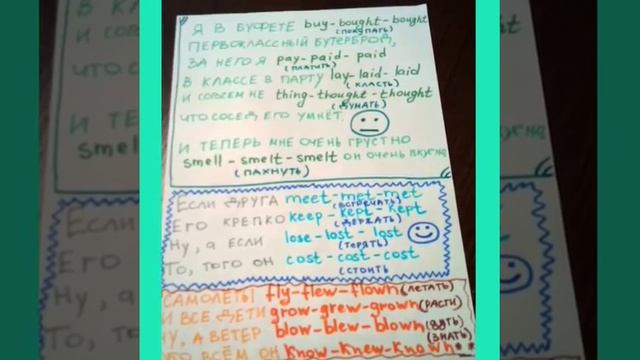 Я В БУФЕТЕ buy-bought-bought
(ПОКУПАТЬ)
ПЕРВОКЛАССНЫЙ БУТЕРБРОД,
ЗА НЕГО Я pay-paid-paid
(ПЛАТИТЬ)
В КЛАССЕ В ПАРТУ lay-laid-laid
(КЛАСТЬ)
И СОВСЕМ НЕ thing-thought-thought
(ДУМАТЬ)
ЧТО СОСЕД ЕГО УМНЁТ.
И ТЕПЕРЬ МНЕ ОЧЕНЬ ГРУСТНО
smell-smelt-smelt ОН ОЧЕНЬ ВКУСНО
(ПАХНУТЬ)
ЕСЛИ ДРУГА meet-met-met
(ВСТРЕЧАТЬ)
ЕГО КРЕПКО keep-kept-kept
(ДЕРЖАТЬ)
НУ, А ЕСЛИ lose-lost-lost
(ТЕРЯТЬ)
ТО, ТОГО ОН cost-cost-cost
(СТОИТЬ
САМОЛЁТЫ fly-flew-flown (ЛЕТАТЬ)
И ВСЕ ДЕТИ grow-grew-grown (РАСТИ)
НУ, А ВЕТЕР blow-blew-blown (ДУТЬ)
ВСЁМ ОН know-knew-known (ЗНАТЬ)